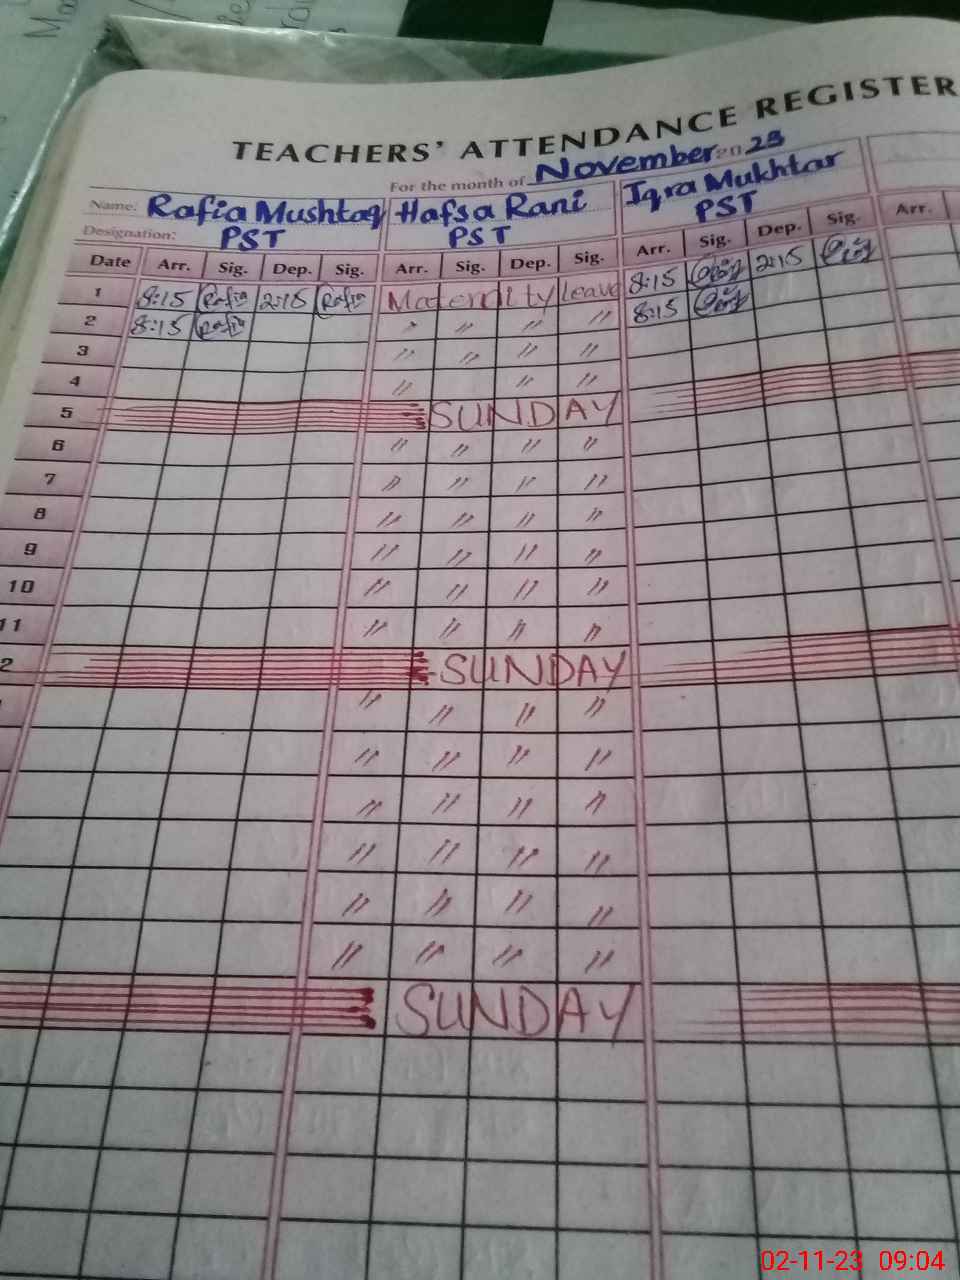 TEACHERS' ATTENDANCE REGISTER
For the month of November 2023
Name: Rafia Mushtaq Hafsa Rani Iqra Mukhtar
Designation: PST PST PST
Date Arr. Sig. Dep. Sig. Arr. Sig. Dep. Sig. Arr. Sig. Dep. Sig. Arr.
1 8:15 Rafia 2:15 Rafia Maternity leave 8:15 2:15
2 8:15 Rafia " " " " 8:15
3 " " " "
4 " " "
5 SUNDAY
6 " " " "
7 " " " "
8 " " " "
9 " " " "
10 " " " "
11 " " " "
2 SUNDAY
" " " "
" " " "
" " " "
" " " "
" " " "
" " " "
SUNDAY
02-11-23 09:04